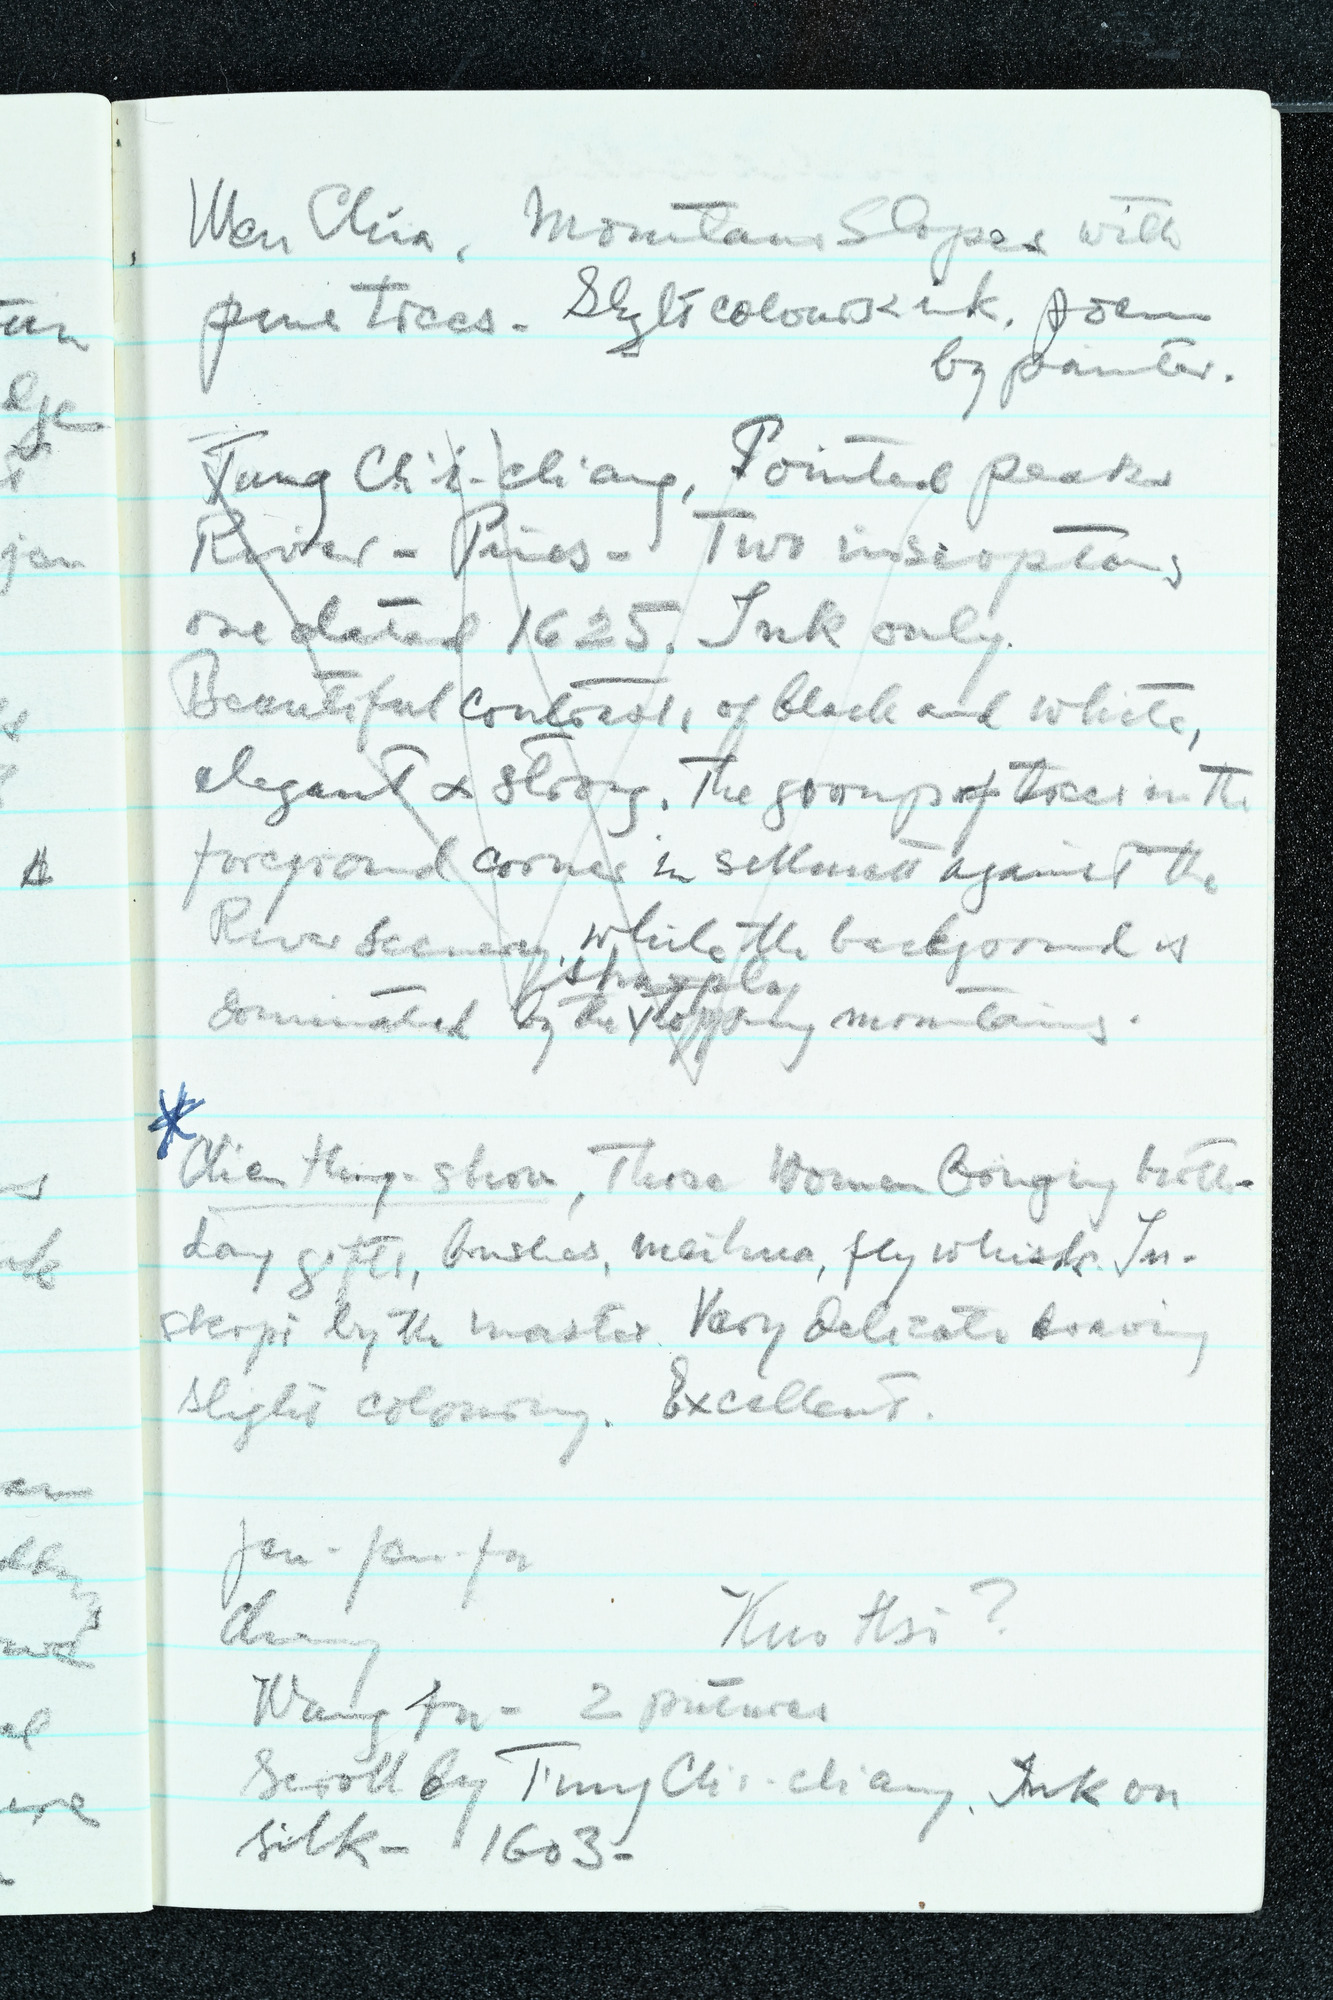 Wen Chia, Mountain Slopes with
pine trees. Slylt colours & ink. poem
by painter.
Tung Chi'i-chiang, Pointed peaks
River - Pines - Two inscriptions
one dated 1625. Ink only.
Beautiful contrasts of black and white,
elegant & strong. The group of trees in the
foreground corner in against the
River Scenery, while the background is
dominated by the mountains.
*
Chien -show, Three Women Bringing birth-
day gifts, meihua, fly whisk. In-
skript by the master. Very delicate drawing
slight colouring. Excellent.
Jen-jen-fu
Chung Kuo Hsi?
Wang Fu - 2 pictures
Scroll by Tung Chi-chiang. Ink on
silk - 1603 -